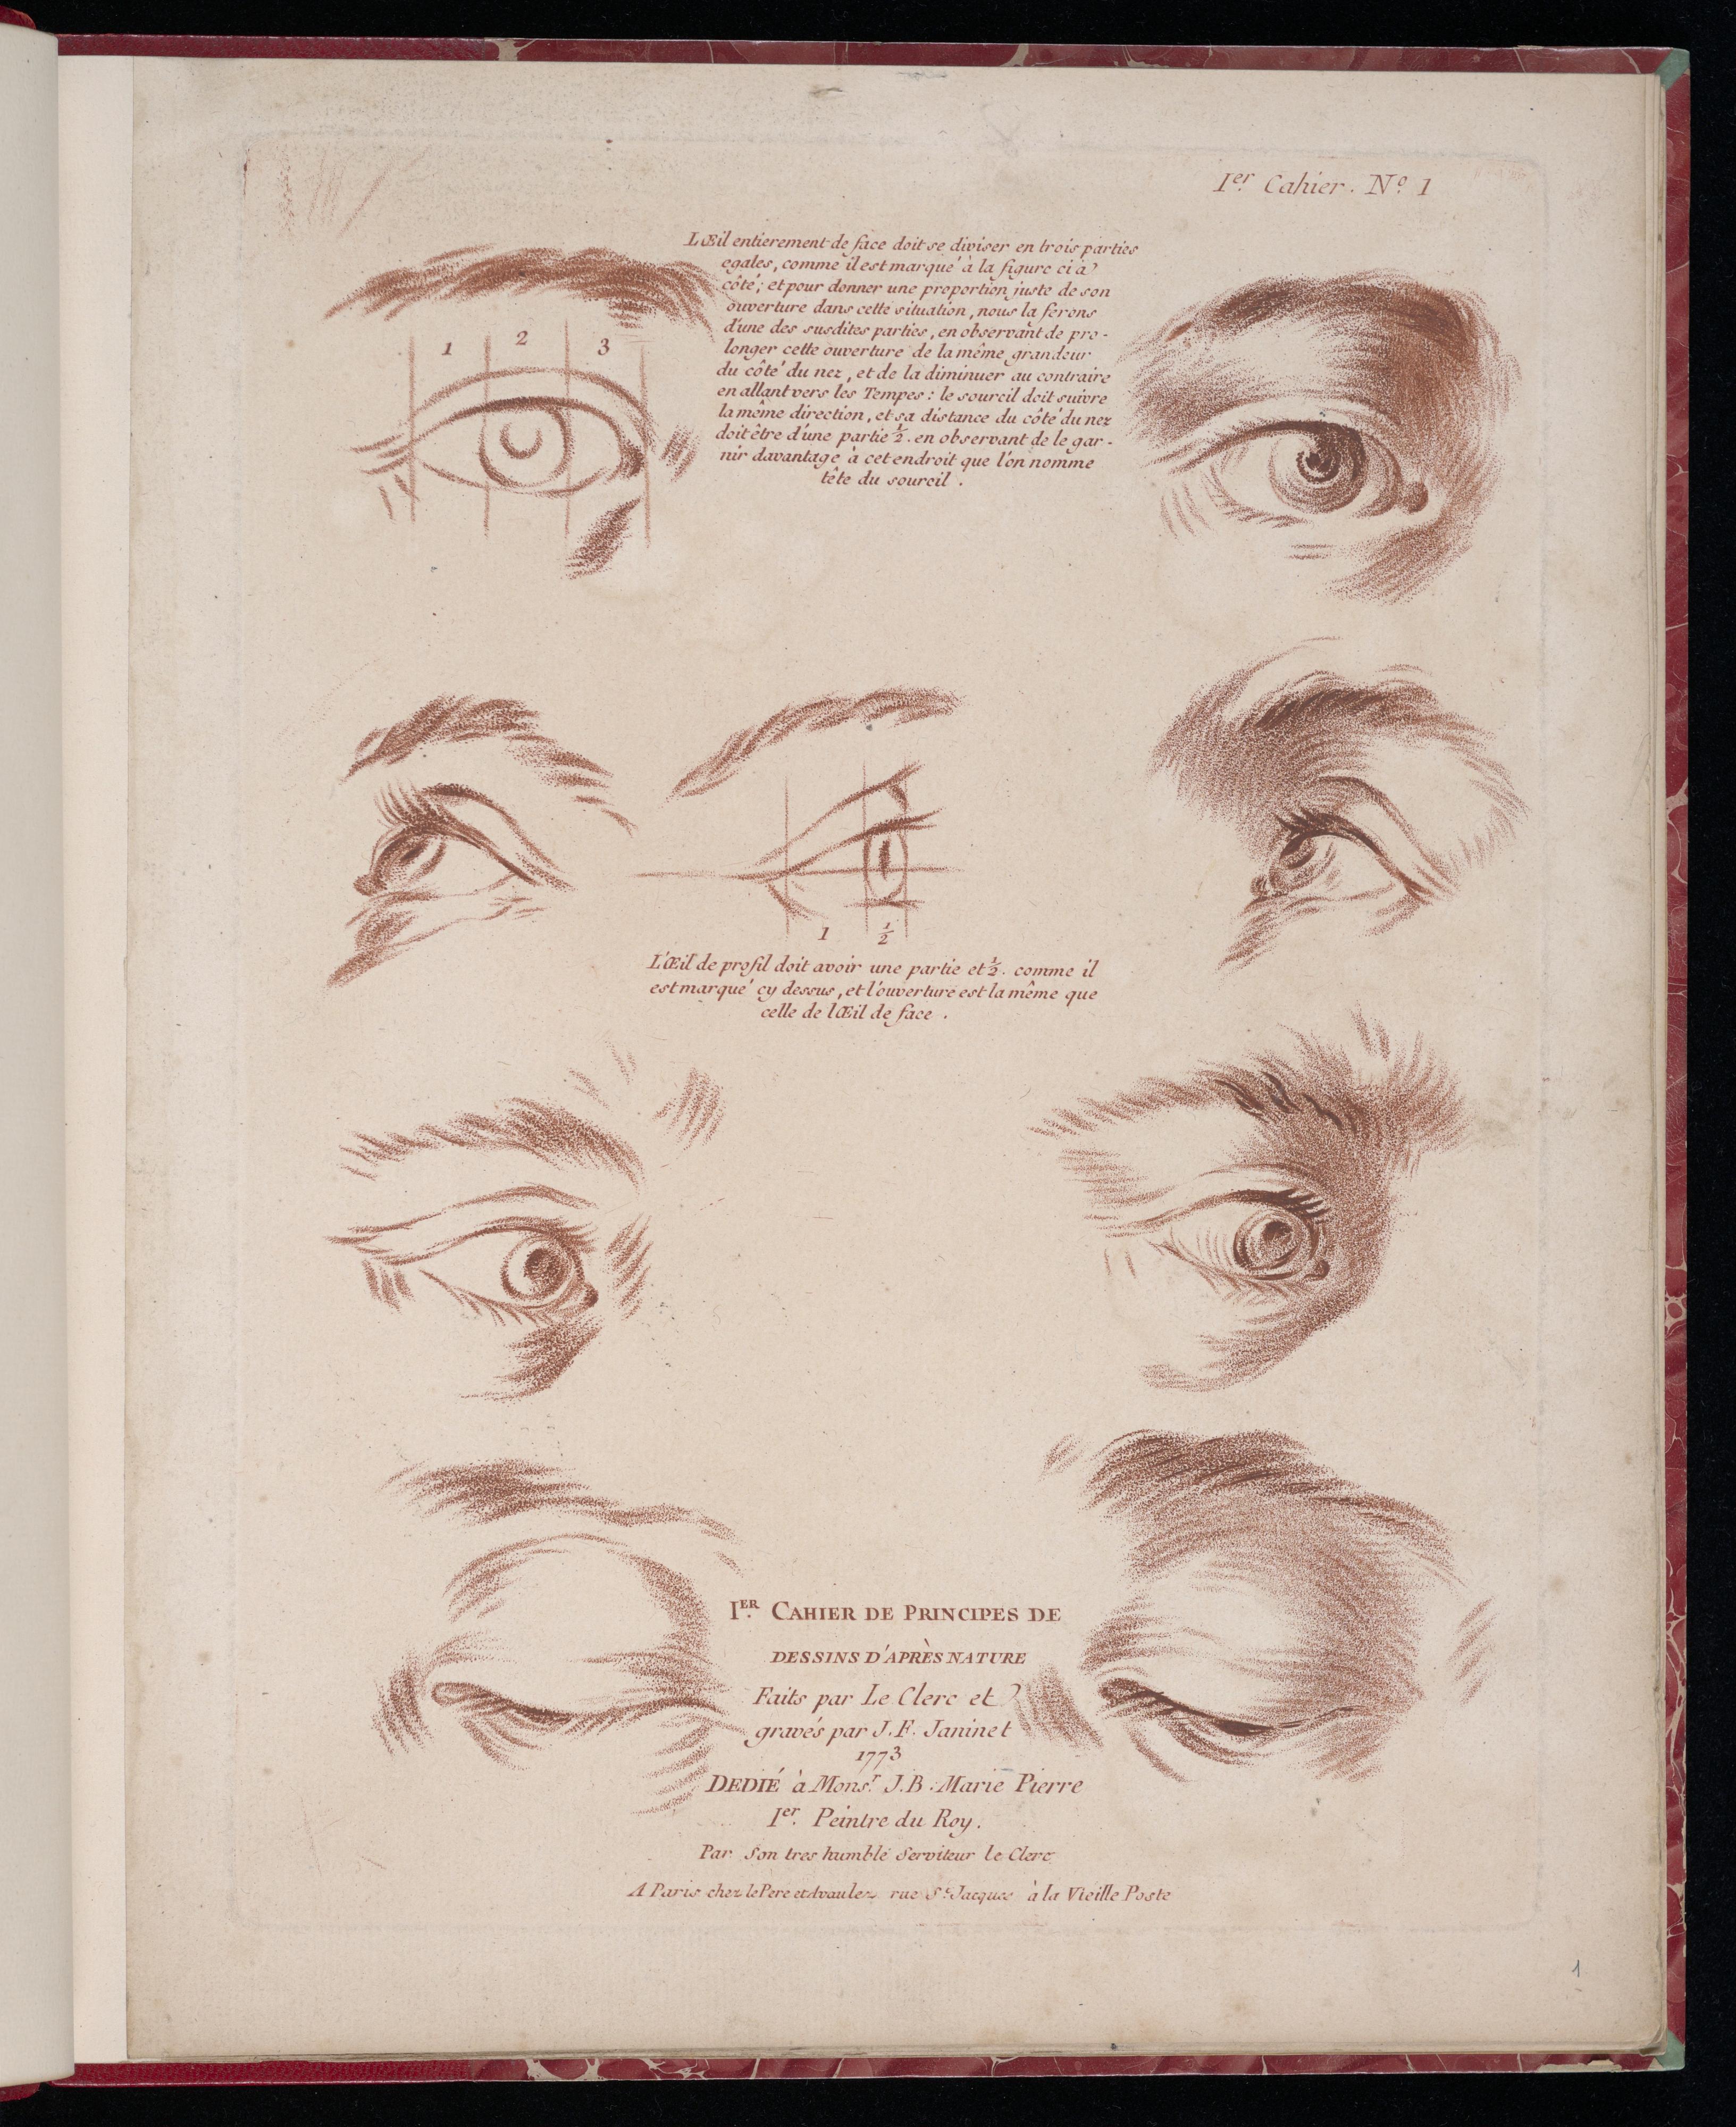 I.er Cahier. No. 1
LŒil entierement de face doit se diviser en trois parties
egales, comme il est marqué à la figure ci à
côté; et pour donner une proportion juste de son
ouverture dans cette situation, nous la ferons
d'une des susdites parties, en observant de pro-
longer cette ouverture de la même grandeur
du côté du nez, et de la diminuer au contraire
en allant vers les Tempes: le sourcil doit suivre
la même direction, et sa distance du côté du nez
doit être d'une partie 1/2. en observant de le gar-
nir davantage à cet endroit que l'on nomme
tête du sourcil.
1 2 3
1 1/2
L'Œil de profil doit avoir une partie et 1/2. comme il
est marqué cy dessus, et l'ouverture est la même que
celle de lŒil de face.
I.ER CAHIER DE PRINCIPES DE
DESSINS D'APRÈS NATURE
Faits par Le Clerc et
gravés par J. F. Janinet
1773
DEDIÉ à Mons.r J. B. Marie Pierre
I.er Peintre du Roy.
Par Son tres humble Serviteur le Clerc
A Paris chez le Pere et Avaulez rue St. Jacques à la Vieille Poste
1